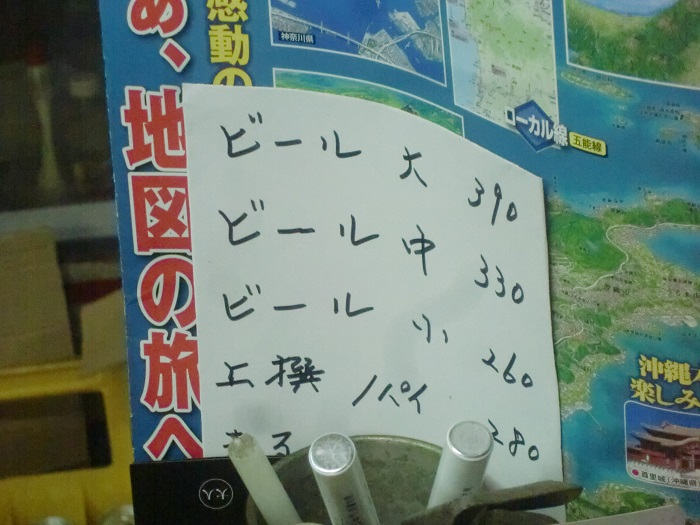 め、
地図の旅へ
感動の
神奈川県
ローカル線
五能線
ビール 大 390
ビール 中 330
ビール 小 260
上撰 1パイ 280
大人
沖縄
楽しみ
首里城(沖縄県